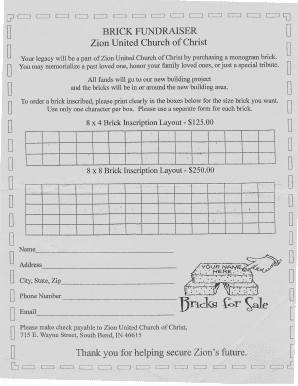 BRICK FUNDRAISER
Zion United Church of Christ
Your legacy will be a part of Zion United Church of Christ by purchasing a monogram brick.
You may memorialize a past loved one, honor your family loved ones, or just a special tribute.
All funds will go to our new building project
and the bricks will be in or around the new building area.
To order a brick inscribed, please print clearly in the boxes below for the size brick you want.
Use only one character per box. Please use a separate form for each brick.
8 x 4 Brick Inscription Layout - $125.00
8 x 8 Brick Inscription Layout - $250.00
Name
Address
City, State, Zip
Phone Number
Email
YOUR NAME
HERE
Bricks for Sale
Please make check payable to Zion United Church of Christ,
715 E. Wayne Street, South Bend, IN 46615
Thank you for helping secure Zion's future.